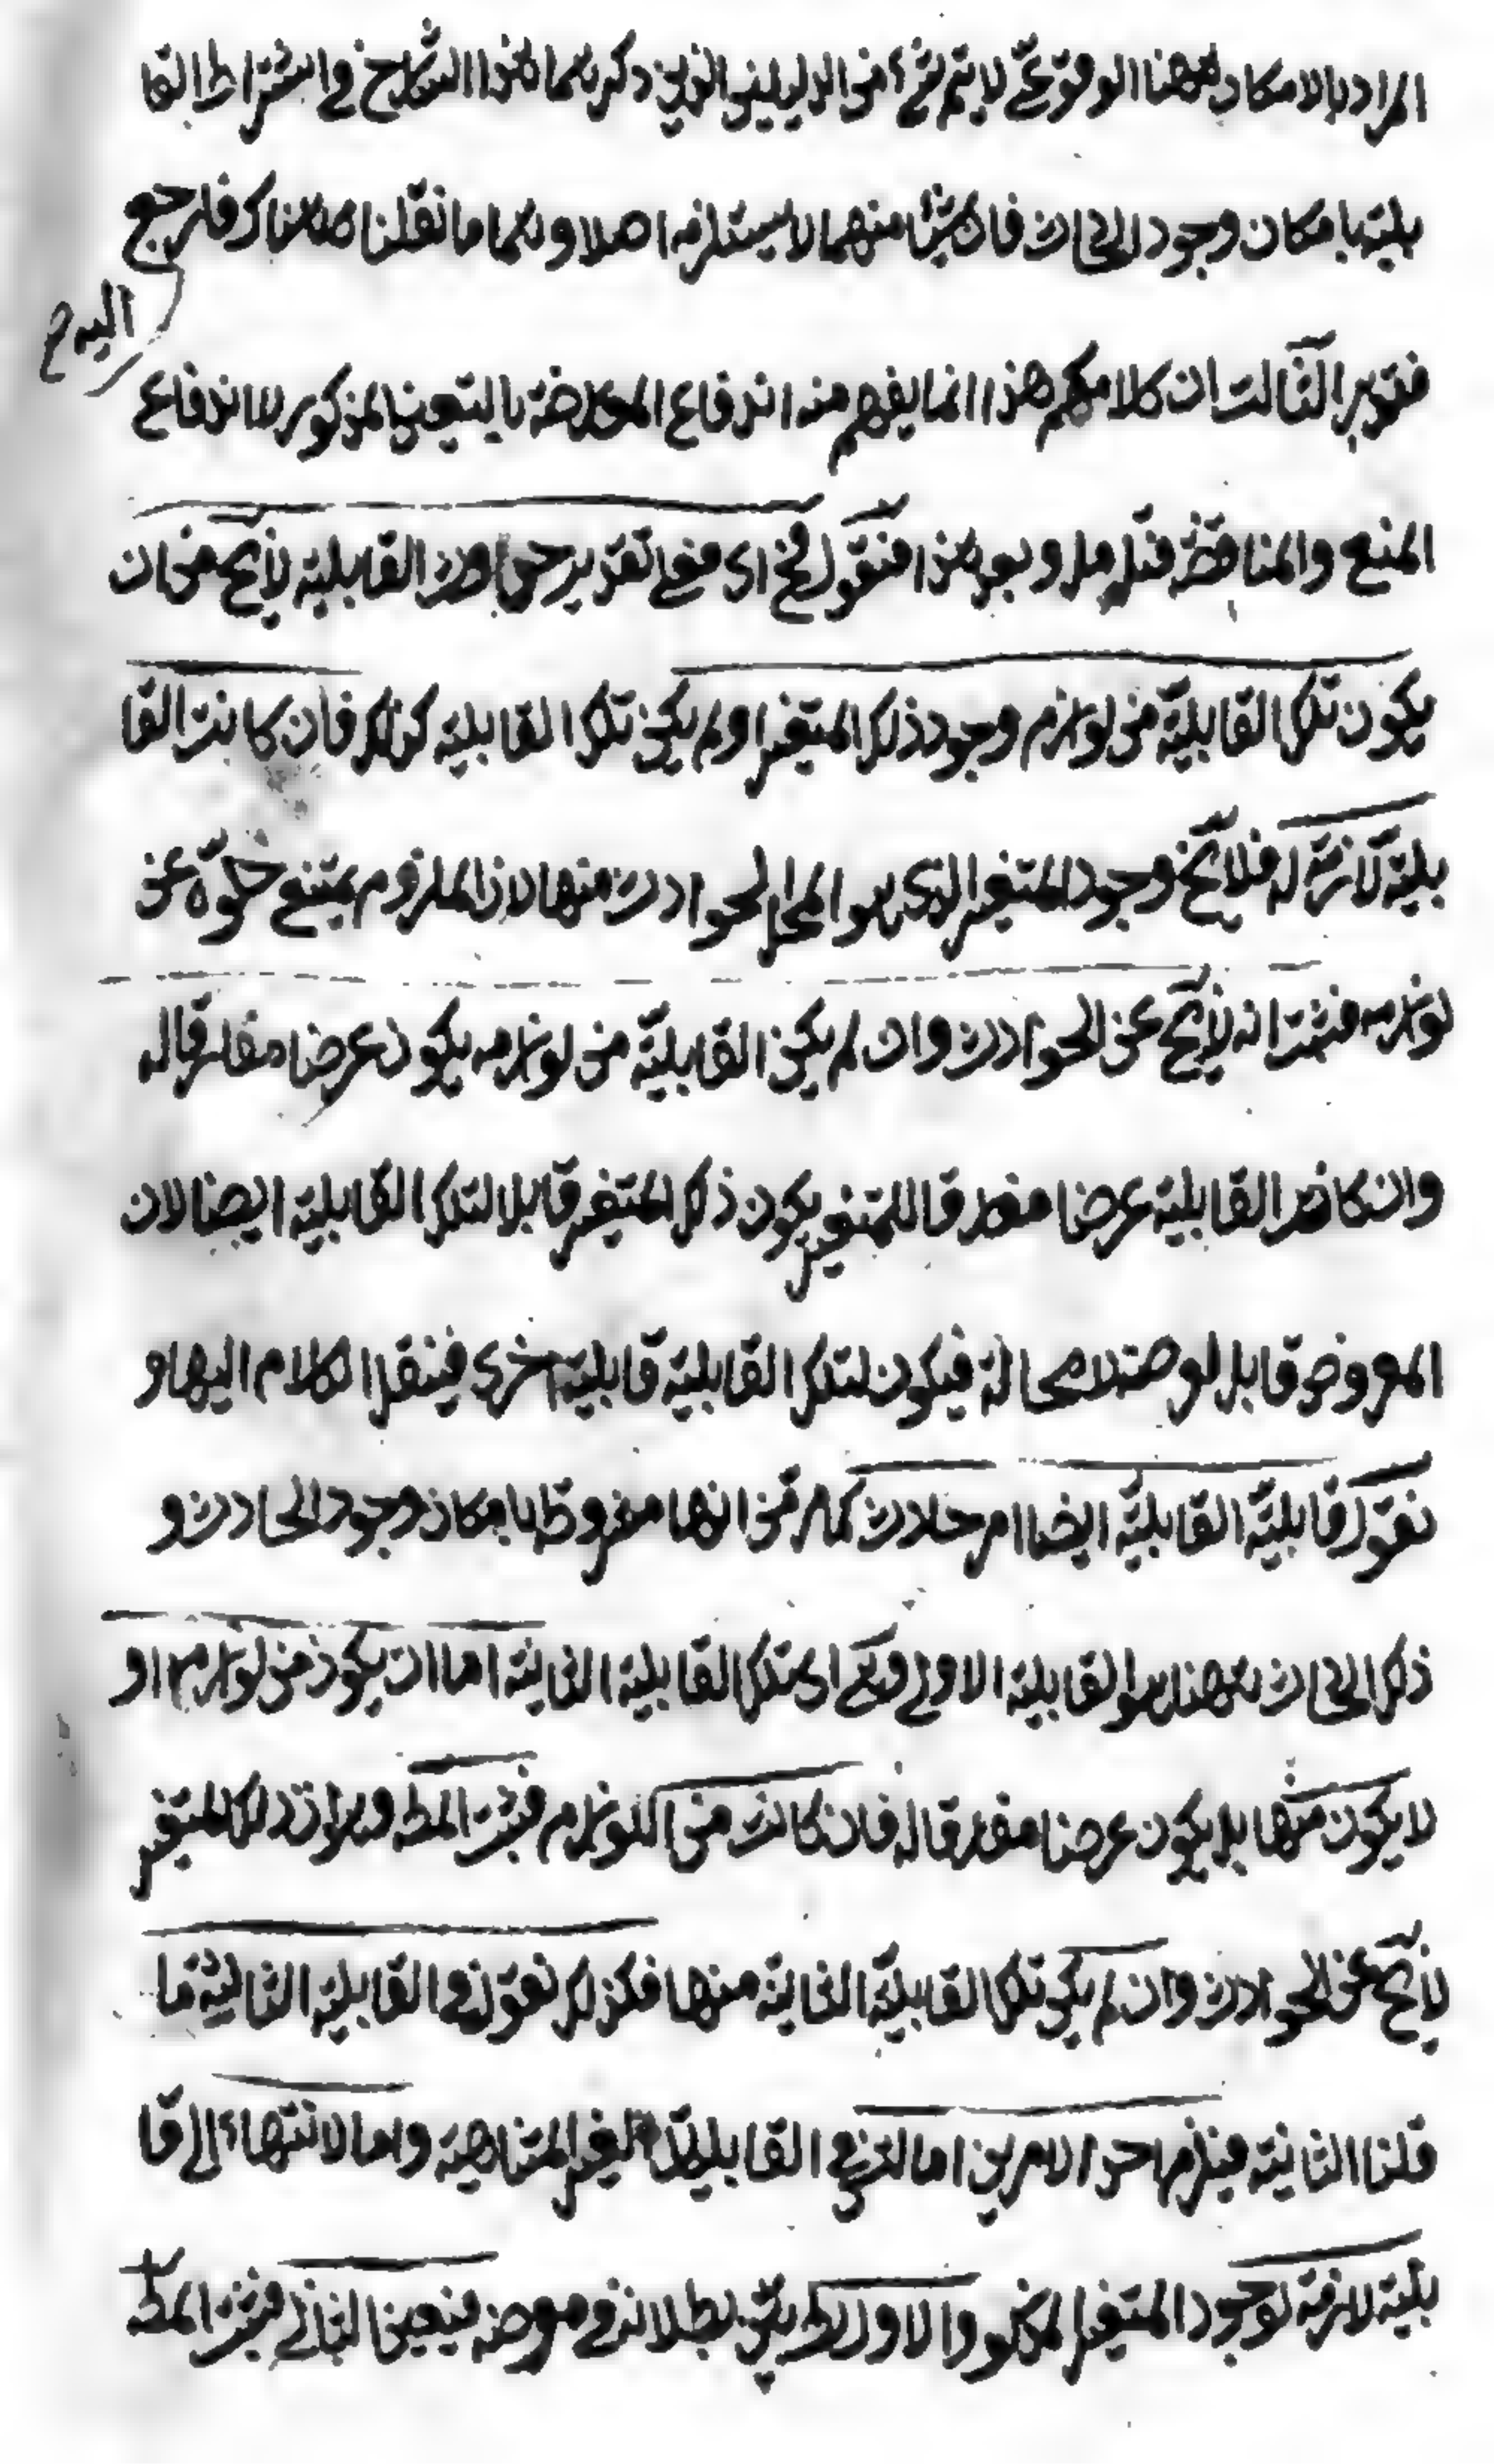 المراد بالامكان ههنا الوقوعي لا يتم شيء من الدليلين الذين ذكرهما هذا الشارح في اشتراط القا
بلية بامكان وجود الحادث فان شيئا منهما لا يستلزمه اصلا وهما ما نقلنا هناك فارجع
اليه
الثالث ان كلامكم هذا انما يفهم منه اندفاع المعارضة بالتعين المذكور لا اندفاع
المنع والمناقضة فتأمل وبعد هذا فنقول فح اى فعلى تقدير حدوث القابلية لا يخ من ان
يكون تلك القابلية من لوازم وجود ذلك المتغير او لم يكن تلك القابلية كذلك فان كانت القا
بلية لازمة له فلا يخ وجود المتغير الذى هو المحل للحوادث منها لان الملزوم يمتنع خلوه عن
لوازمه فثبت انه لا يخ عن الحوادث وان لم يكن القابلية من لوازمه يكون عرضا مفارقا له
وان كانت القابلية عرضا مفارقا للمتغير يكون ذلك المتغير قابلا لتلك القابلية ايضا لان
المعروض قابل لوصفه لا محالة فيكون لتلك القابلية قابلية اخرى فينقل الكلام اليها و
نقول قابلية القابلية ايضا امر حادث كما مر من انها مشروطة بامكان وجود الحادث و
ذلك الحادث ههنا هو القابلية الاولى وهى اى تلك القابلية الثانية اما ان يكون من لوازمه او
لا يكون منها بل يكون عرضا مفارقا له فان كانت من اللوازم فثبت المط وهو ان ذلك المتغير
لا يخ عن الحوادث وان لم يكن تلك القابلية الثانية منها فكذلك نقول في القابلية الثالثة ما
قلنا الثانية فيلزم احد الامرين اما القابلية الغير المتناهية واما الانتهاء الى قا
بلية لازمة لوجود المتغير المذكور والاول بط بين بطلانه في موضعه فيتعين الثاني فثبت المط